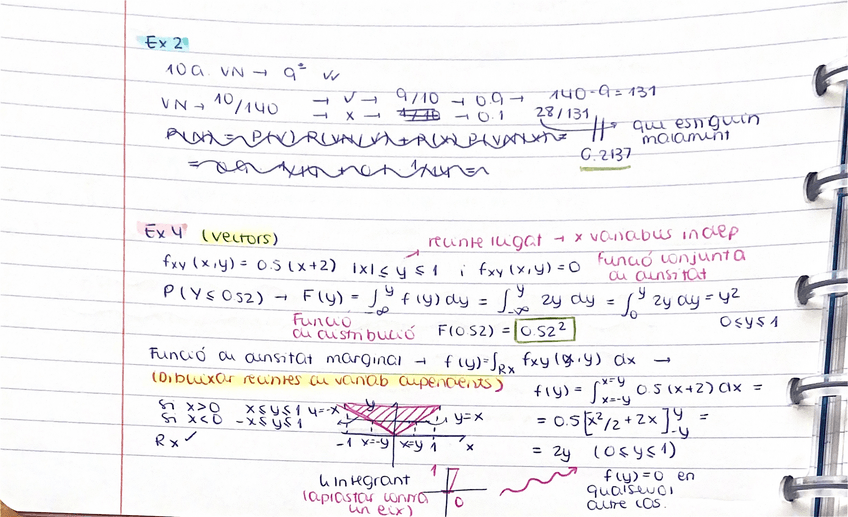 Ex 2
10a. VN → 9ª
VN → 10/140 → ✓ → 9/10 → 0.9 → 140-9=131
→ x → → 0.1 28/131 → qui estiguin malament
0.2137
Ex 4 (vectors)
recinte lligat → x variables indep
fxy (x,y) = 0.5 (x+2) |x| ≤ y ≤ 1 i fxy (x,y) = 0 funció conjunta
de densitat
P(Y ≤ 0.52) → F(y) = ∫_{-∞}^{y} f(y) dy = ∫_{-∞}^{y} 2y dy = ∫_0^y 2y dy = y²
0 ≤ y ≤ 1
Funció
de distribució F(0.52) = 0.52²
Funció de densitat marginal → f(y) = ∫_{Rx} fxy (x,y) dx →
(Dibuixar recintes de variab dependents) f(y) = ∫_{x=-y}^{x=y} 0.5 (x+2) dx =
Si x>0 x ≤ y ≤ 1 y=-x y y=x = 0.5 [x²/2 + 2x]_{-y}^{y} =
Si x<0 -x ≤ y ≤ 1
Rx ✓ -1 x=-y x=y 1 x = 2y (0 ≤ y ≤ 1)
Integrant 1 f(y)=0 en
(aplastar contra 0 qualsevol
un eix) altre cas.